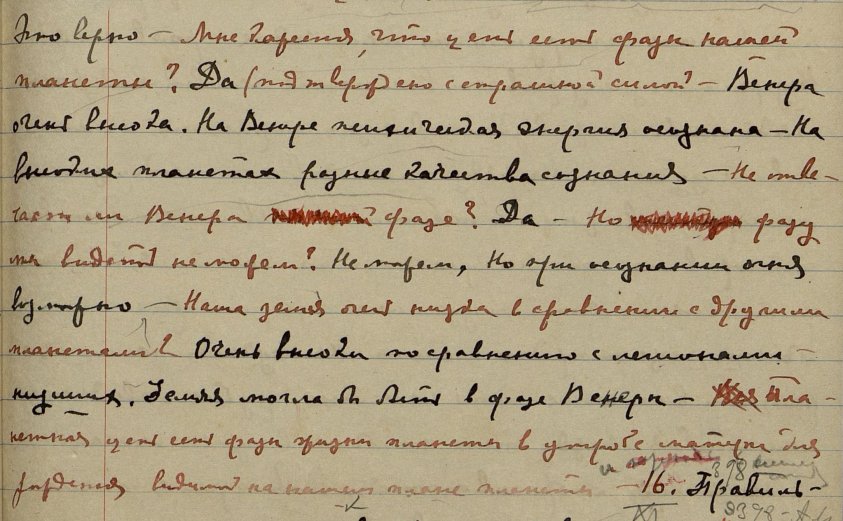 Это верно — Мне кажется, что цепь есть фазы нашей
планеты? Да (подтверждено с страшной силой) — Венера
очень высока. На Венере психическая энергия осознана — На
высших планетах разные качества сознания — Не отве-
чает ли Венера фазе? Да — Но фазу
мы видеть не можем? Не можем, но при осознании огня
возможно — Наша земля очень низка в сравнении с другими
планетами? Очень высока по сравнению с миллионами
низших. Земля могла бы быть в фазе Венеры — Пла-
нетная цепь есть фазы жизни планеты в утробе матери для
рождения видимой на нашем плане планеты — 16. Правиль-